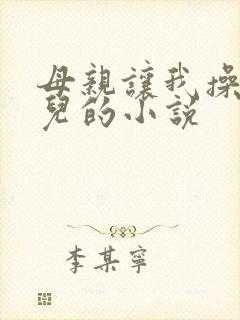 母親讓我操
兒的小說
李某寧